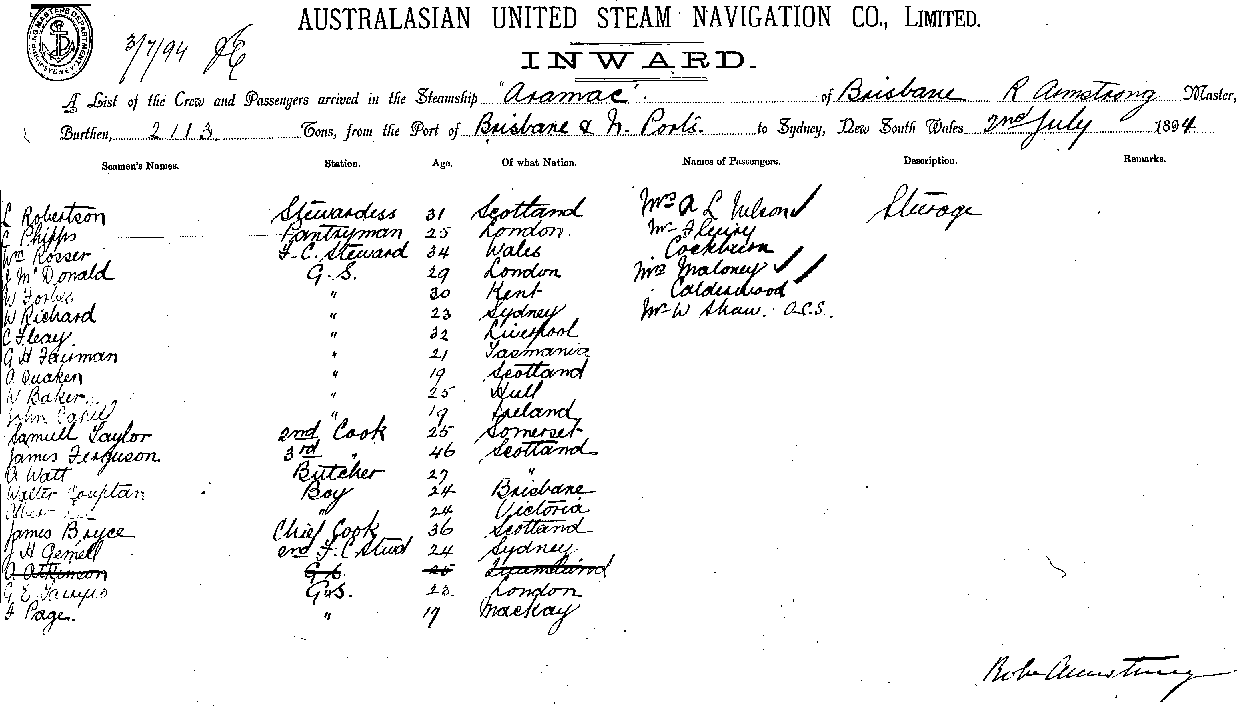 AUSTRALASIAN UNITED STEAM NAVIGATION CO., LIMITED.
3/7/94
INWARD.
A List of the Crew and Passengers arrived in the Steamship "Aramac". of Brisbane R Armstrong Master,
Burthen, 2113 Tons, from the Port of Brisbane & N. Ports. to Sydney, New South Wales 2nd July 1894
Seamen's Names. Station. Age. Of what Nation. Names of Passengers. Description. Remarks.
L Robertson Stewardess 31 Scotland Mrs A L Nelson Steerage
C Phipps Pantryman 25 London. Mr Fleury
Wm Rosser F.C. Steward 34 Wales Cockburn
J McDonald G.S. 29 London Mrs Maloney
W Forbes " 30 Kent Calderwood
W Richard " 23 Sydney Mr W Shaw. O.C.S.
C Fleay. " 32 Liverpool
G H " 21 Tasmania
A Quaken " 19 Scotland
W Baker " 25 Hull
John " 19 Ireland
Samuel Taylor 2nd Cook 25 Somerset
James Ferguson 3rd " 46 Scotland
A Watt Butcher 27 "
Walter Boy 24 Brisbane
" 24 Victoria
James Bryce Chief Cook 36 Scotland
J H Gemell 2nd F.C. Stwd 24 Sydney
A Atkinson G.S. 25
G E G.S. 23 London
F Page. " 19 Mackay
Robt Armstrong